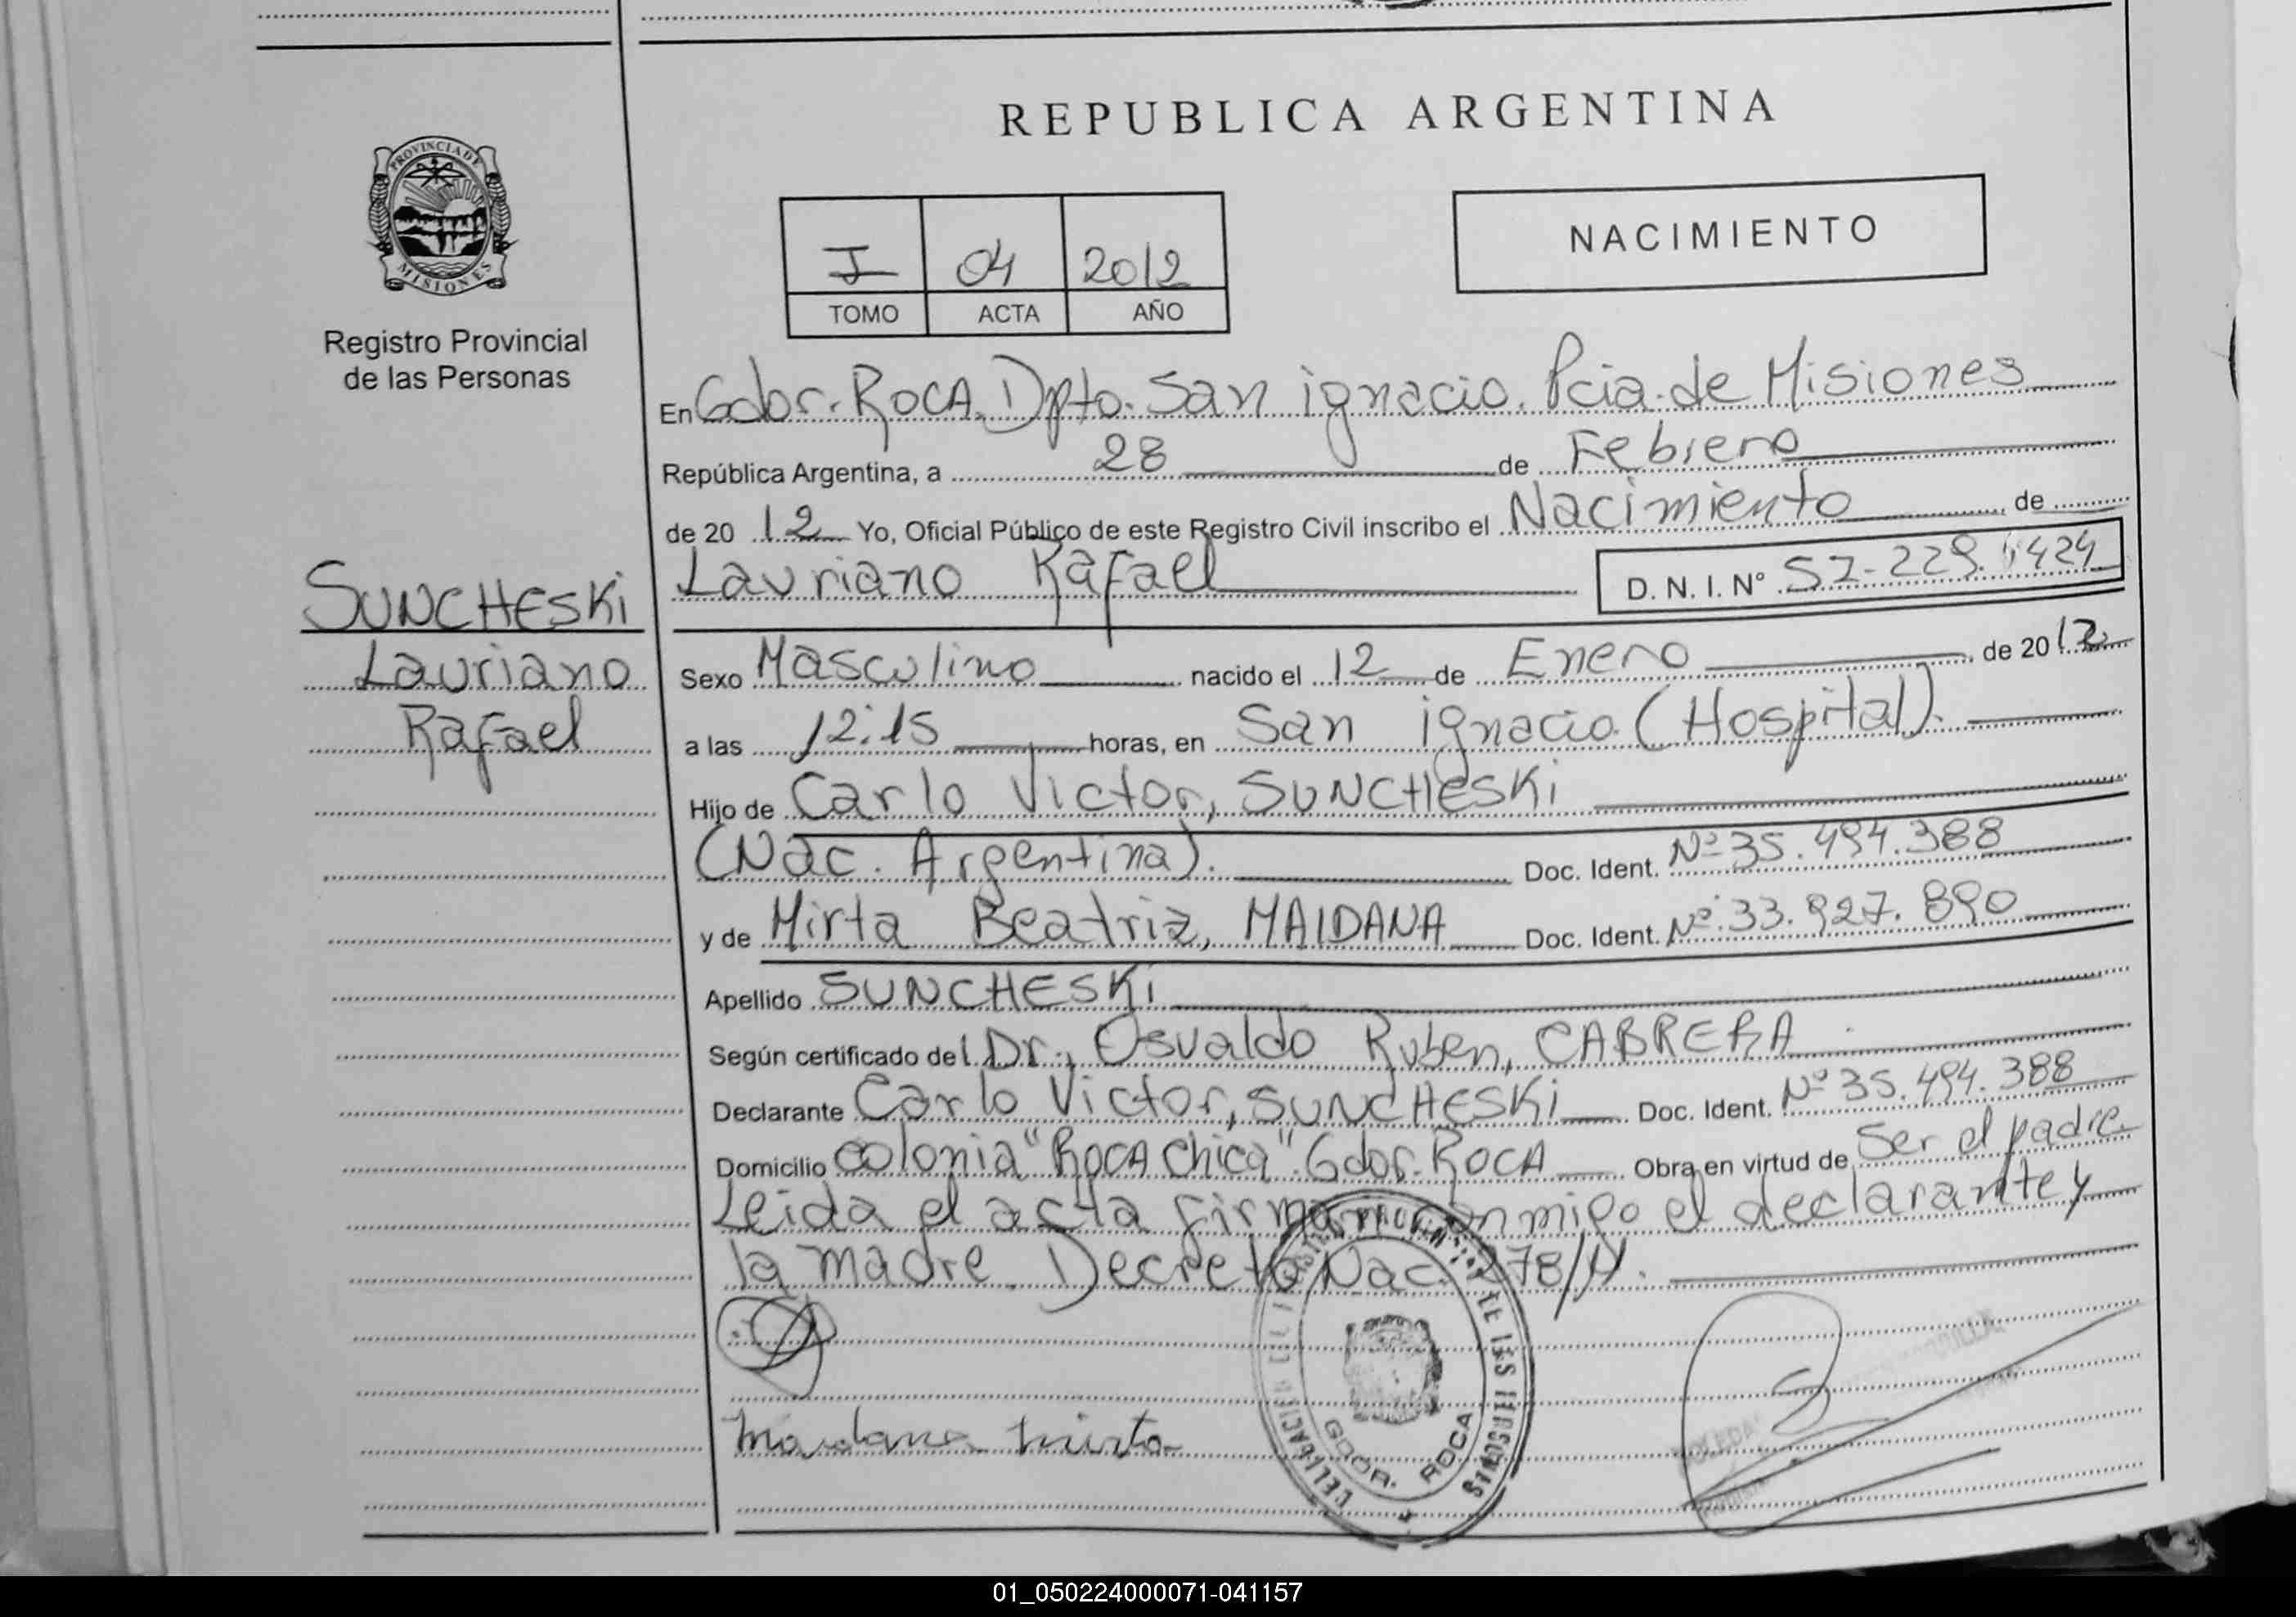 REPUBLICA ARGENTINA
PROVINCIA DE
MISIONES
Registro Provincial
de las Personas
NACIMIENTO
I 04 2012
TOMO ACTA AÑO
En Gdor. ROCA. Dpto. San ignacio. Pcia. de Misiones
República Argentina, a 28 de Febrero
de 20 12 Yo, Oficial Público de este Registro Civil inscribo el Nacimiento de
SUNCHESKi
Lauriano
Rafael
Lauriano Rafael
D. N. I. Nº
Sexo Masculino nacido el 12 de Enero de 2012
a las 12:15 horas, en San ignacio (Hospital).
Hijo de Carlo Victor, SUNCHESKi
(Nac. Argentina). Doc. Ident. Nº 35.494.388
y de Mirta Beatriz, MAIDANA Doc. Ident. Nº 33.927.890
Apellido SUNCHESKi
Según certificado del Dr., Osvaldo Ruben, CABRERA
Declarante Carlo Victor, SUNCHESKi Doc. Ident. Nº 35.494.388
Domicilio colonia "ROCA chica". Gdor. ROCA Obra en virtud de Ser el padre.
Leida el acta firman conmigo el declarante y
la madre. Decreto Nac. 278/11.
Maidana Mirta
GDOR. ROCA
01_050224000071-041157